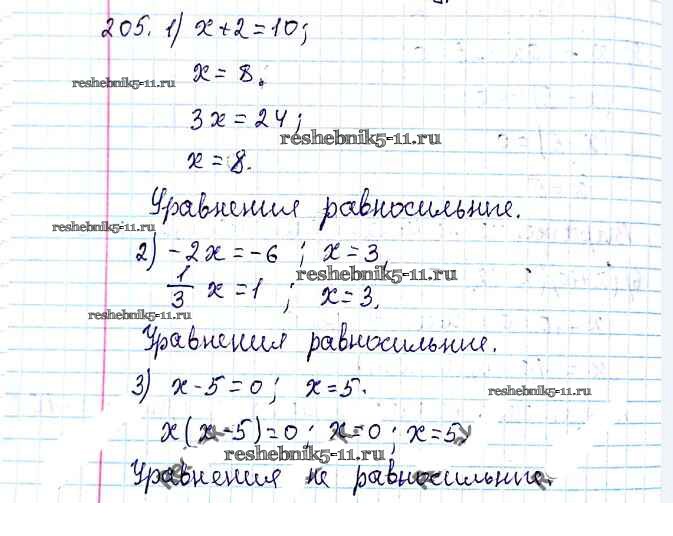 205. 1) x+2=10;
x=8.
reshebnik5-11.ru
3x=24;
reshebnik5-11.ru
x=8.
Уравнения равносильные.
reshebnik5-11.ru
2) -2x=-6; x=3,
reshebnik5-11.ru
1/3 x=1; x=3,
reshebnik5-11.ru
Уравнения равносильные.
3) x-5=0; x=5.
reshebnik5-11.ru
x(x-5)=0; x=0; x=5,
reshebnik5-11.ru
Уравнения не равносильные.